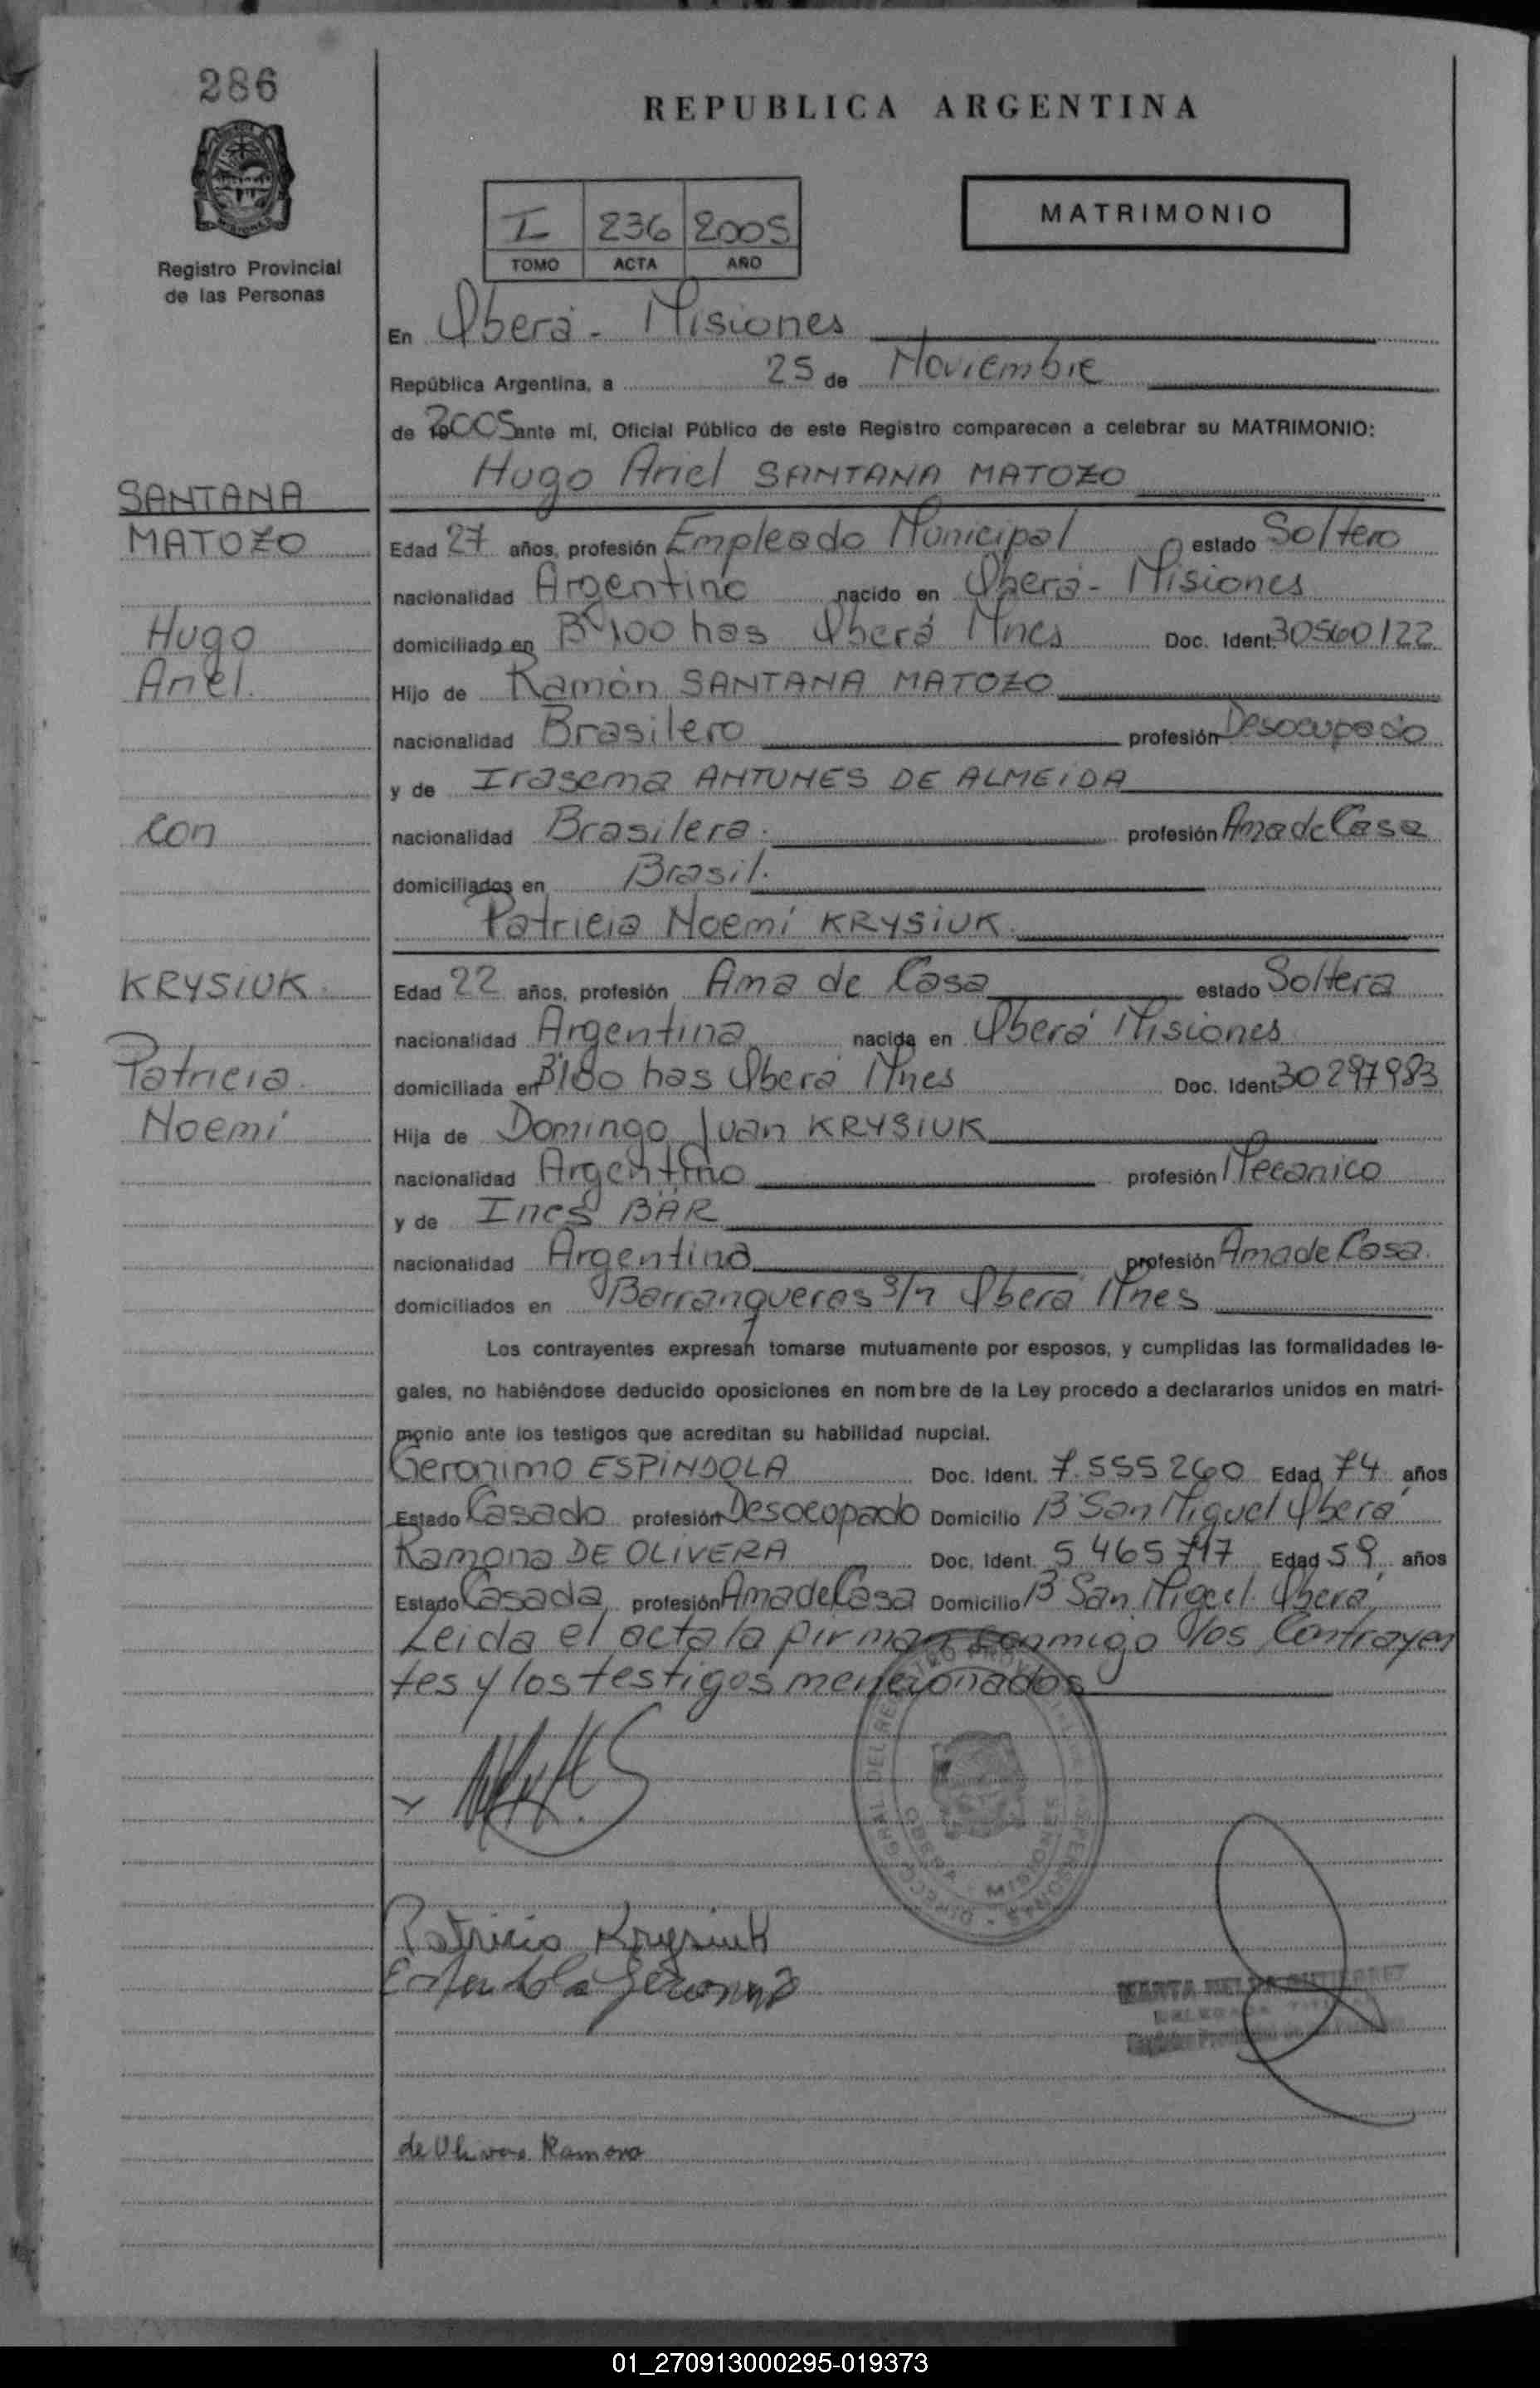 286
REPUBLICA ARGENTINA
MATRIMONIO
I 236 2005
TOMO ACTA AÑO
Registro Provincial
de las Personas
En Oberá - Misiones
República Argentina, a 25 de Noviembre
de 2005 ante mí, Oficial Público de este Registro comparecen a celebrar su MATRIMONIO:
Hugo Ariel SANTANA MATOZO
SANTANA
MATOZO
Edad 27 años, profesión Empleado Municipal estado Soltero
nacionalidad Argentino nacido en Oberá - Misiones
Hugo
domiciliado en Bº 100 has Oberá Mnes Doc. Ident. 30560122
Ariel.
Hijo de Ramón SANTANA MATOZO
nacionalidad Brasilero profesión Desocupado
y de Irasema ANTUNES DE ALMEIDA
con
nacionalidad Brasilera. profesión Ama de Casa
domiciliados en Brasil.
Patricia Noemí KRYSIUK.
KRYSIUK.
Edad 22 años, profesión Ama de Casa estado Soltera
nacionalidad Argentina nacida en Oberá Misiones
Patricia
domiciliada en Bº100 has Oberá Mnes Doc. Ident. 30297983
Noemí
Hija de Domingo Juan KRYSIUK
nacionalidad Argentino profesión Mecanico
y de Ines BÄR
nacionalidad Argentina profesión Ama de Casa.
domiciliados en Barranqueras s/n Oberá Mnes
Los contrayentes expresan tomarse mutuamente por esposos, y cumplidas las formalidades le-
gales, no habiéndose deducido oposiciones en nombre de la Ley procedo a declararlos unidos en matri-
monio ante los testigos que acreditan su habilidad nupcial.
Geronimo ESPINDOLA Doc. Ident. 7.555260 Edad 74 años
Estado Casado profesión Desocupado Domicilio Bº San Miguel Oberá
Ramona DE OLIVERA Doc. Ident. 5465717 Edad 59 años
Estado Casada profesión Ama de Casa Domicilio Bº San Miguel. Oberá
Leida el acta la firman conmigo los Contrayen
tes y los testigos mencionados
DIRECC. GRAL. DEL REGISTRO PROVINCIAL DE LAS PERSONAS
MISIONES
Patricia Krysiuk
Espindola Geronimo
MARTA GUTIERREZ
de Olivera Ramona
01_270913000295-019373